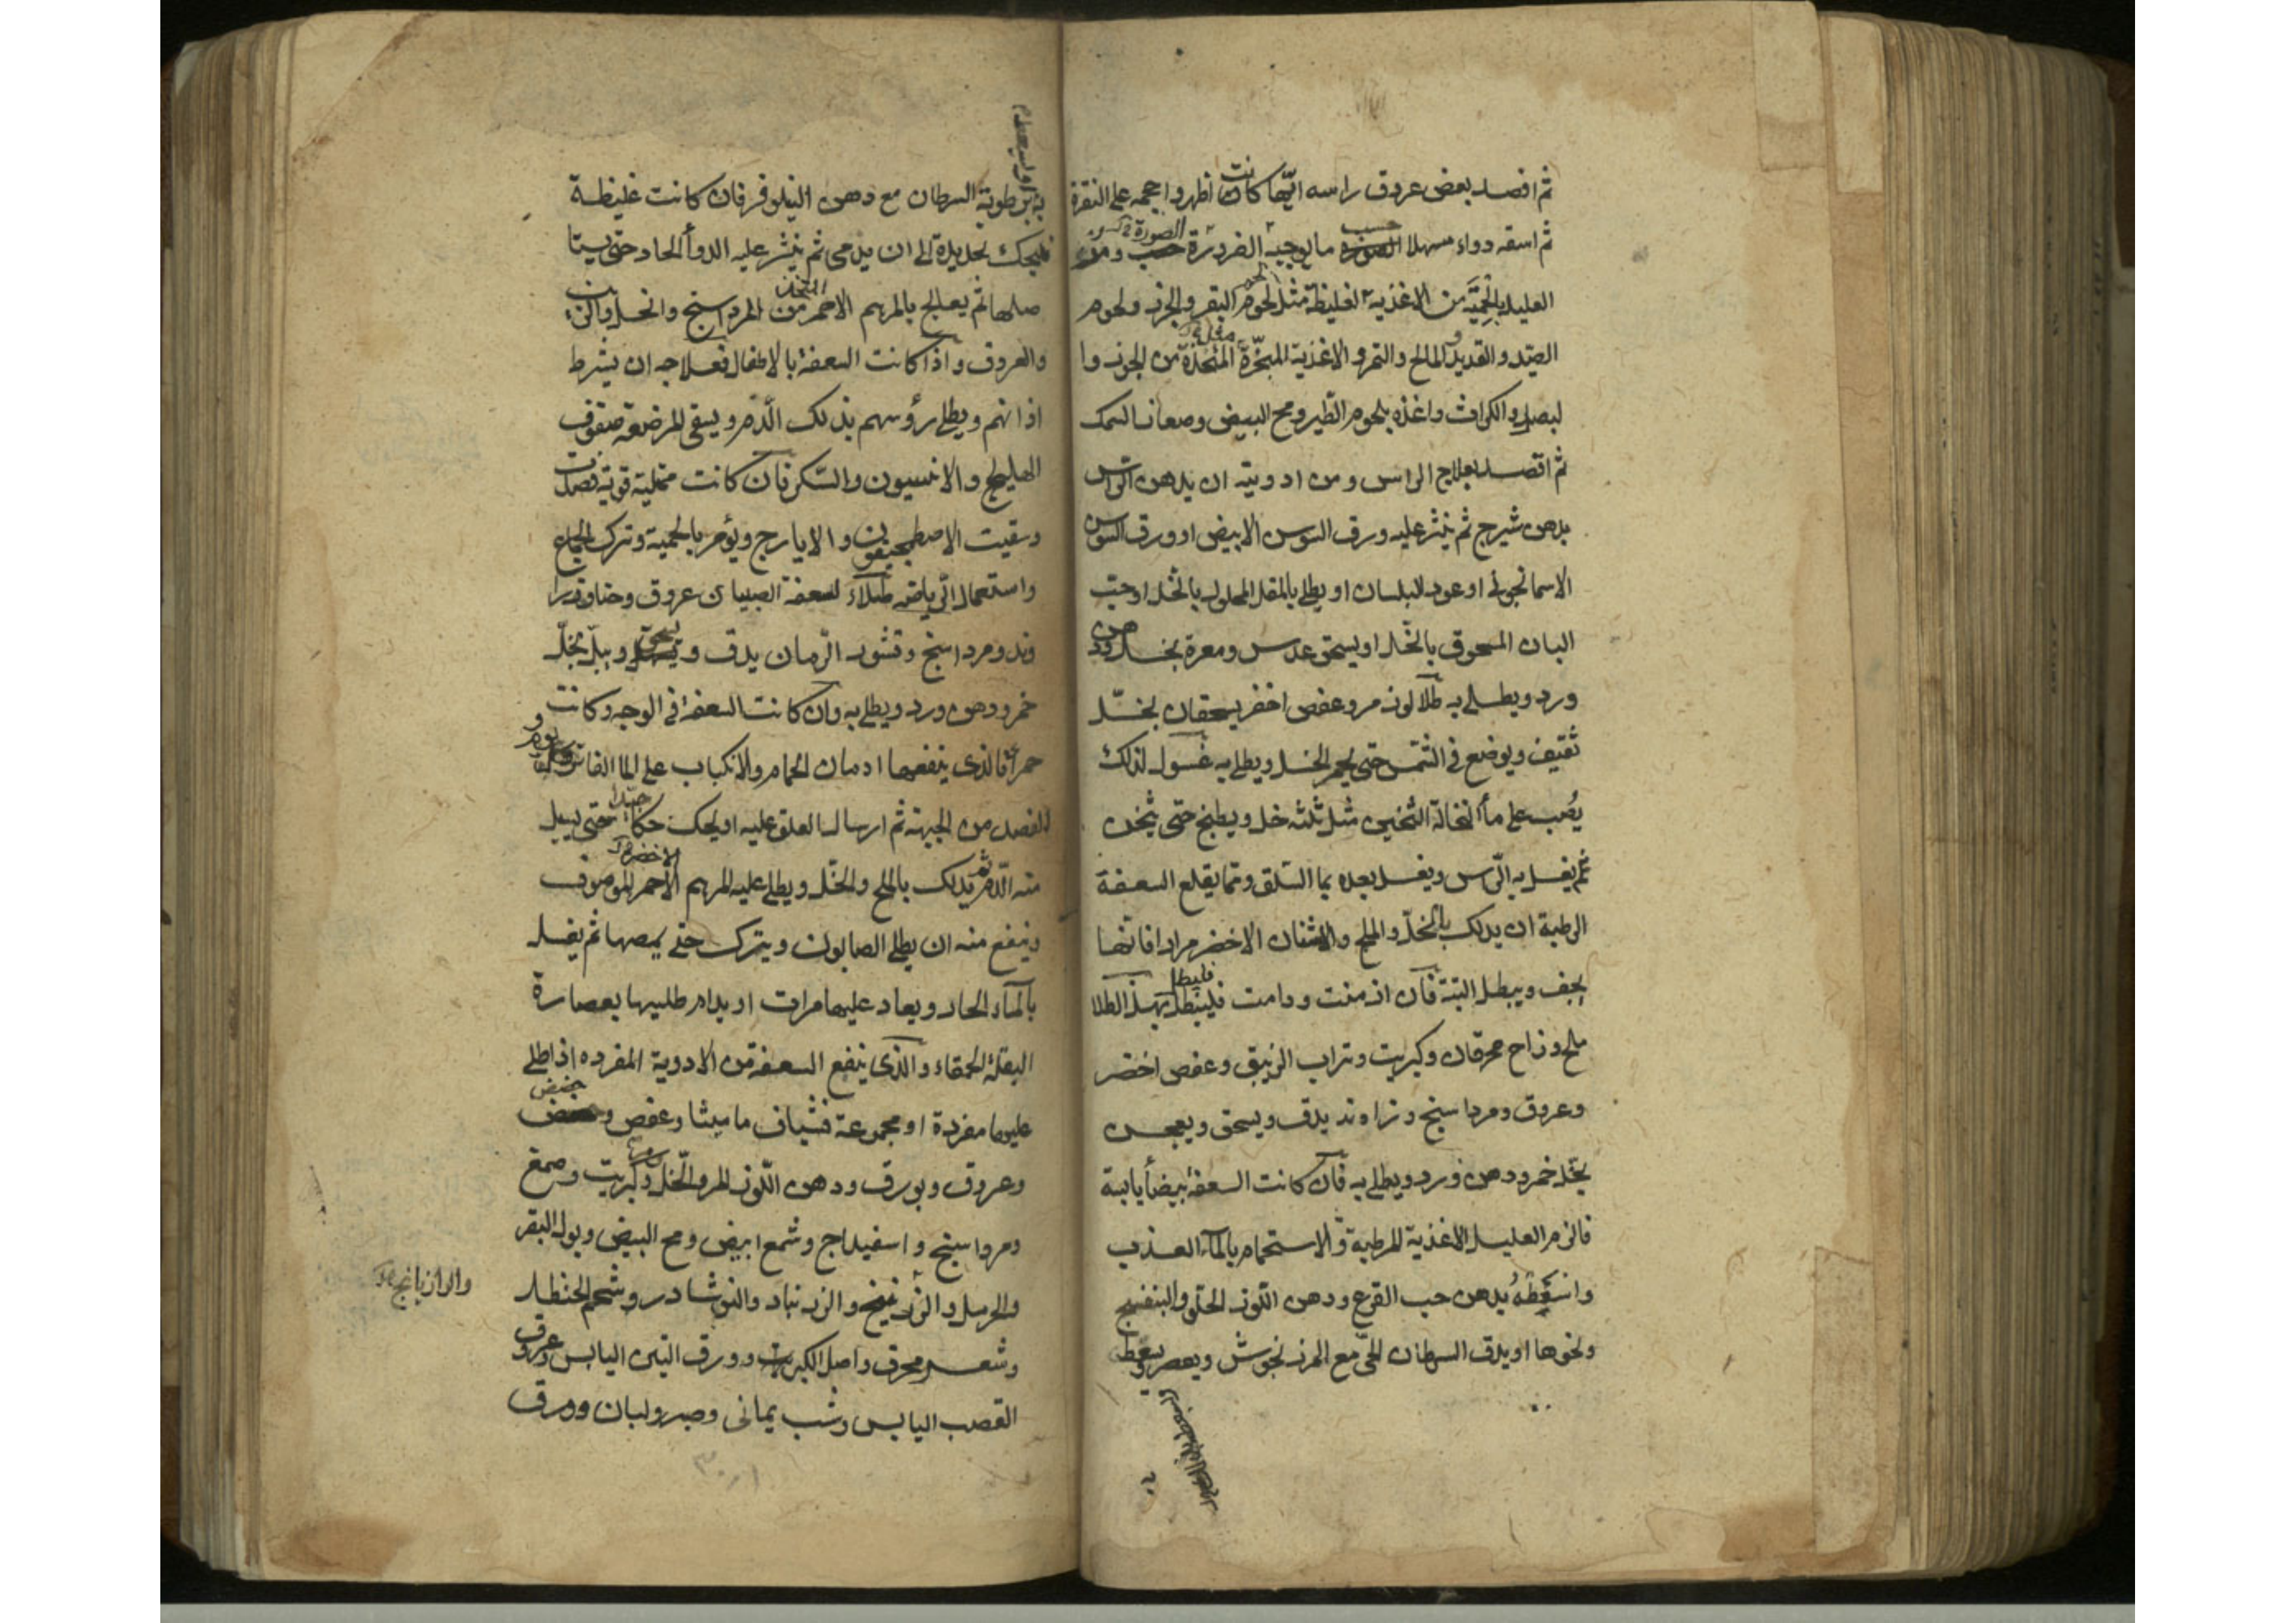 ثم افصد بعض عروق راسه ايّها كانت اظهر واحجمه على النقرة
ثم اسقه دواء مسهلا ما يوجبه الضرورة حسب الصورة ومر
العليل بالحميّة من الاغذية الغليظة مثل لحوم البقر والجزر ولحوم
الصّيد والقديد والمالح والتمر والاغذية المبخّرة المتخذة من الجوز وا
لبصل والكراث واغذه بلحوم الطّير ومح البيض وصغار السمك
ثم اقصد بعلاج الراس ومن ادويته ان يدهن الراس
بدهن شيرج ثم ينثر عليه ورق السوس الابيض او ورق السوس
الاسمانجونى او عود البلسان او يطلى بالمقل المحلول بالخل او حبّ
البان المسحوق بالخّل او يسحق عدس ومغرة بخل ودهن
ورد ويطلى به طلا لوز مر وعفص اخضر يسحقان بخلّ
ثقيف ويوضع فى الشمس حتى يحمر الخل ويطلى به غسول لذلك
يُصب على مأ النخالة الثخين مثل ثلثه خل ويطبخ حتى يثخن
ثم يغسل به الرّاس ويغسل بعده بما السّلق ومما يقلع السعفة
الرطبة ان يدلك بالخلّ والملح والاشنان الاخضر مرارا فانها
يجف ويبطل البتة فان ازمنت ودامت فليطل بهذ الطلا
ملح وزاج محرقان وكبريت وتراب الزيبق وعفص اخضر
وعروق ومرداسنج وزراوند يدق ويسحق ويعجن
بخّل خمر ودهن ورد ويطلى به فان كانت السعفة بيضأ يابسة
فالزم العليل الاغذية المرطبة والاستحمام بالمآء العذب
واسعطهُ بدهن حب القرع ودهن اللوز الحلو والبنفسج
ونحوها او يدق السرطان الحّى مع المرزنجوش ويعصر ويسعط
به او برطوبة السرطان مع دهن النيلوفر فان كانت غليظة
فليحك بحديدة الى ان يدمى ثم ينثر عليه الدوأ الحاد حتى يستا
صلها ثم يعالج بالمرهم الاحمر المتخذ من المرداسنج والخل والزيت
والعروق واذا كانت السعفة بالاطفال فعلاجه ان يشرط
اذانهم ويطلى رؤسهم بذلك الّدم ويسقى المرضعة سفوف
الهليلج والانيسون والسّكر فان كانت ممتلية قوية فصدت
وسقيت الاصطمخيقون والايارج ويؤمر بالحمية وترك الجماع
واستعمال الرّياضه طلاء لسعفة الصبيان عروق وحنا وزرا
وند ومرداسنج وقشور الرّمان يدق ويسحق ويبلّ بخلّ
خمر ودهن ورد ويطلى به وان كانت السعفة فى الوجه وكانت
حمرأ فالذى ينفعها ادمان الحمام والانكباب على الما الفاتر
الفصد من الجبهة ثم ارسال العلق عليه او يحك حكا جيّدا حتى يسيل
منه الّدم ثم يدلك بالملح والخّل ويطلى عليه المرهم الاحمر الموصوف
وينفع منه ان يطلى الصابون ويترك حتى يمصها ثم يغسل
بالمآء الحار ويعاد عليها مرات او يدام طليها بعصارة
البقلة الحمقاء والذى ينفع السعفة من الادوية المفرده اذا طلى
عليها مفردة او مجموعة فشياف ماميثا وعفص وحضض
وعروق وبورق ودهن اللّوز المر والخل وكبريت وصمغ
ومرداسنج واسفيداج وشمع ابيض ومح البيض وبول البقر
والحرمل والزرنيخ والزرنباد والنوشادر وشحم الحنظل
والرازيانج
وشعير محرق واصل الكبر ورق التين اليابس وعروق
القصب اليابس وشب يمانى وصبر ولبان وورق